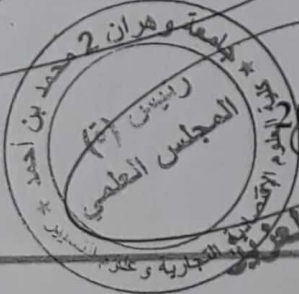 جامعة وهران 2 محمد بن أحمد
كلية العلوم الاقتصادية التجارية و علوم التسيير
رئيس (ة)
المجلس العلمي